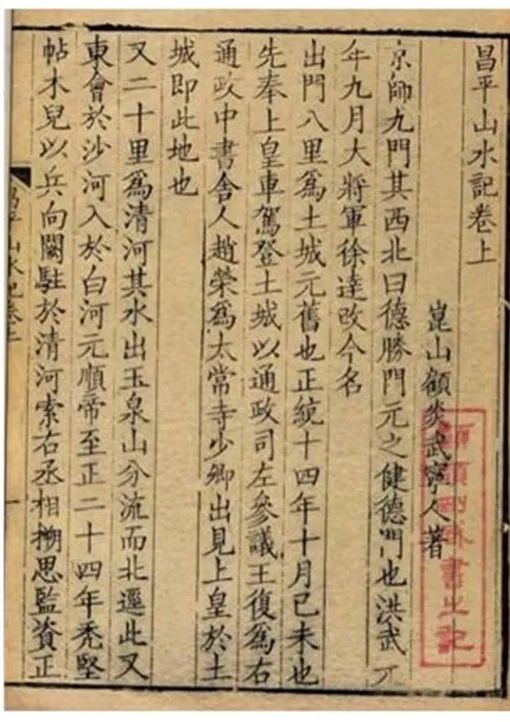 昌平山水記卷上
崑山顧炎武寧人著
京師九門其西北曰德勝門元之健德門也洪武元
年九月大將軍徐達改今名
出門八里爲土城元舊也正統十四年十月己未也
先奉上皇車駕登土城以通政司左參議王復爲右
通政中書舍人趙榮爲太常寺少卿出見上皇於土
城即此地也
又二十里爲清河其水出玉泉山分流而北逕此又
東會於沙河入於白河元順帝至正二十四年禿堅
帖木兒以兵向闕駐於清河索右丞相搠思監資正
昌平山水記卷上
一